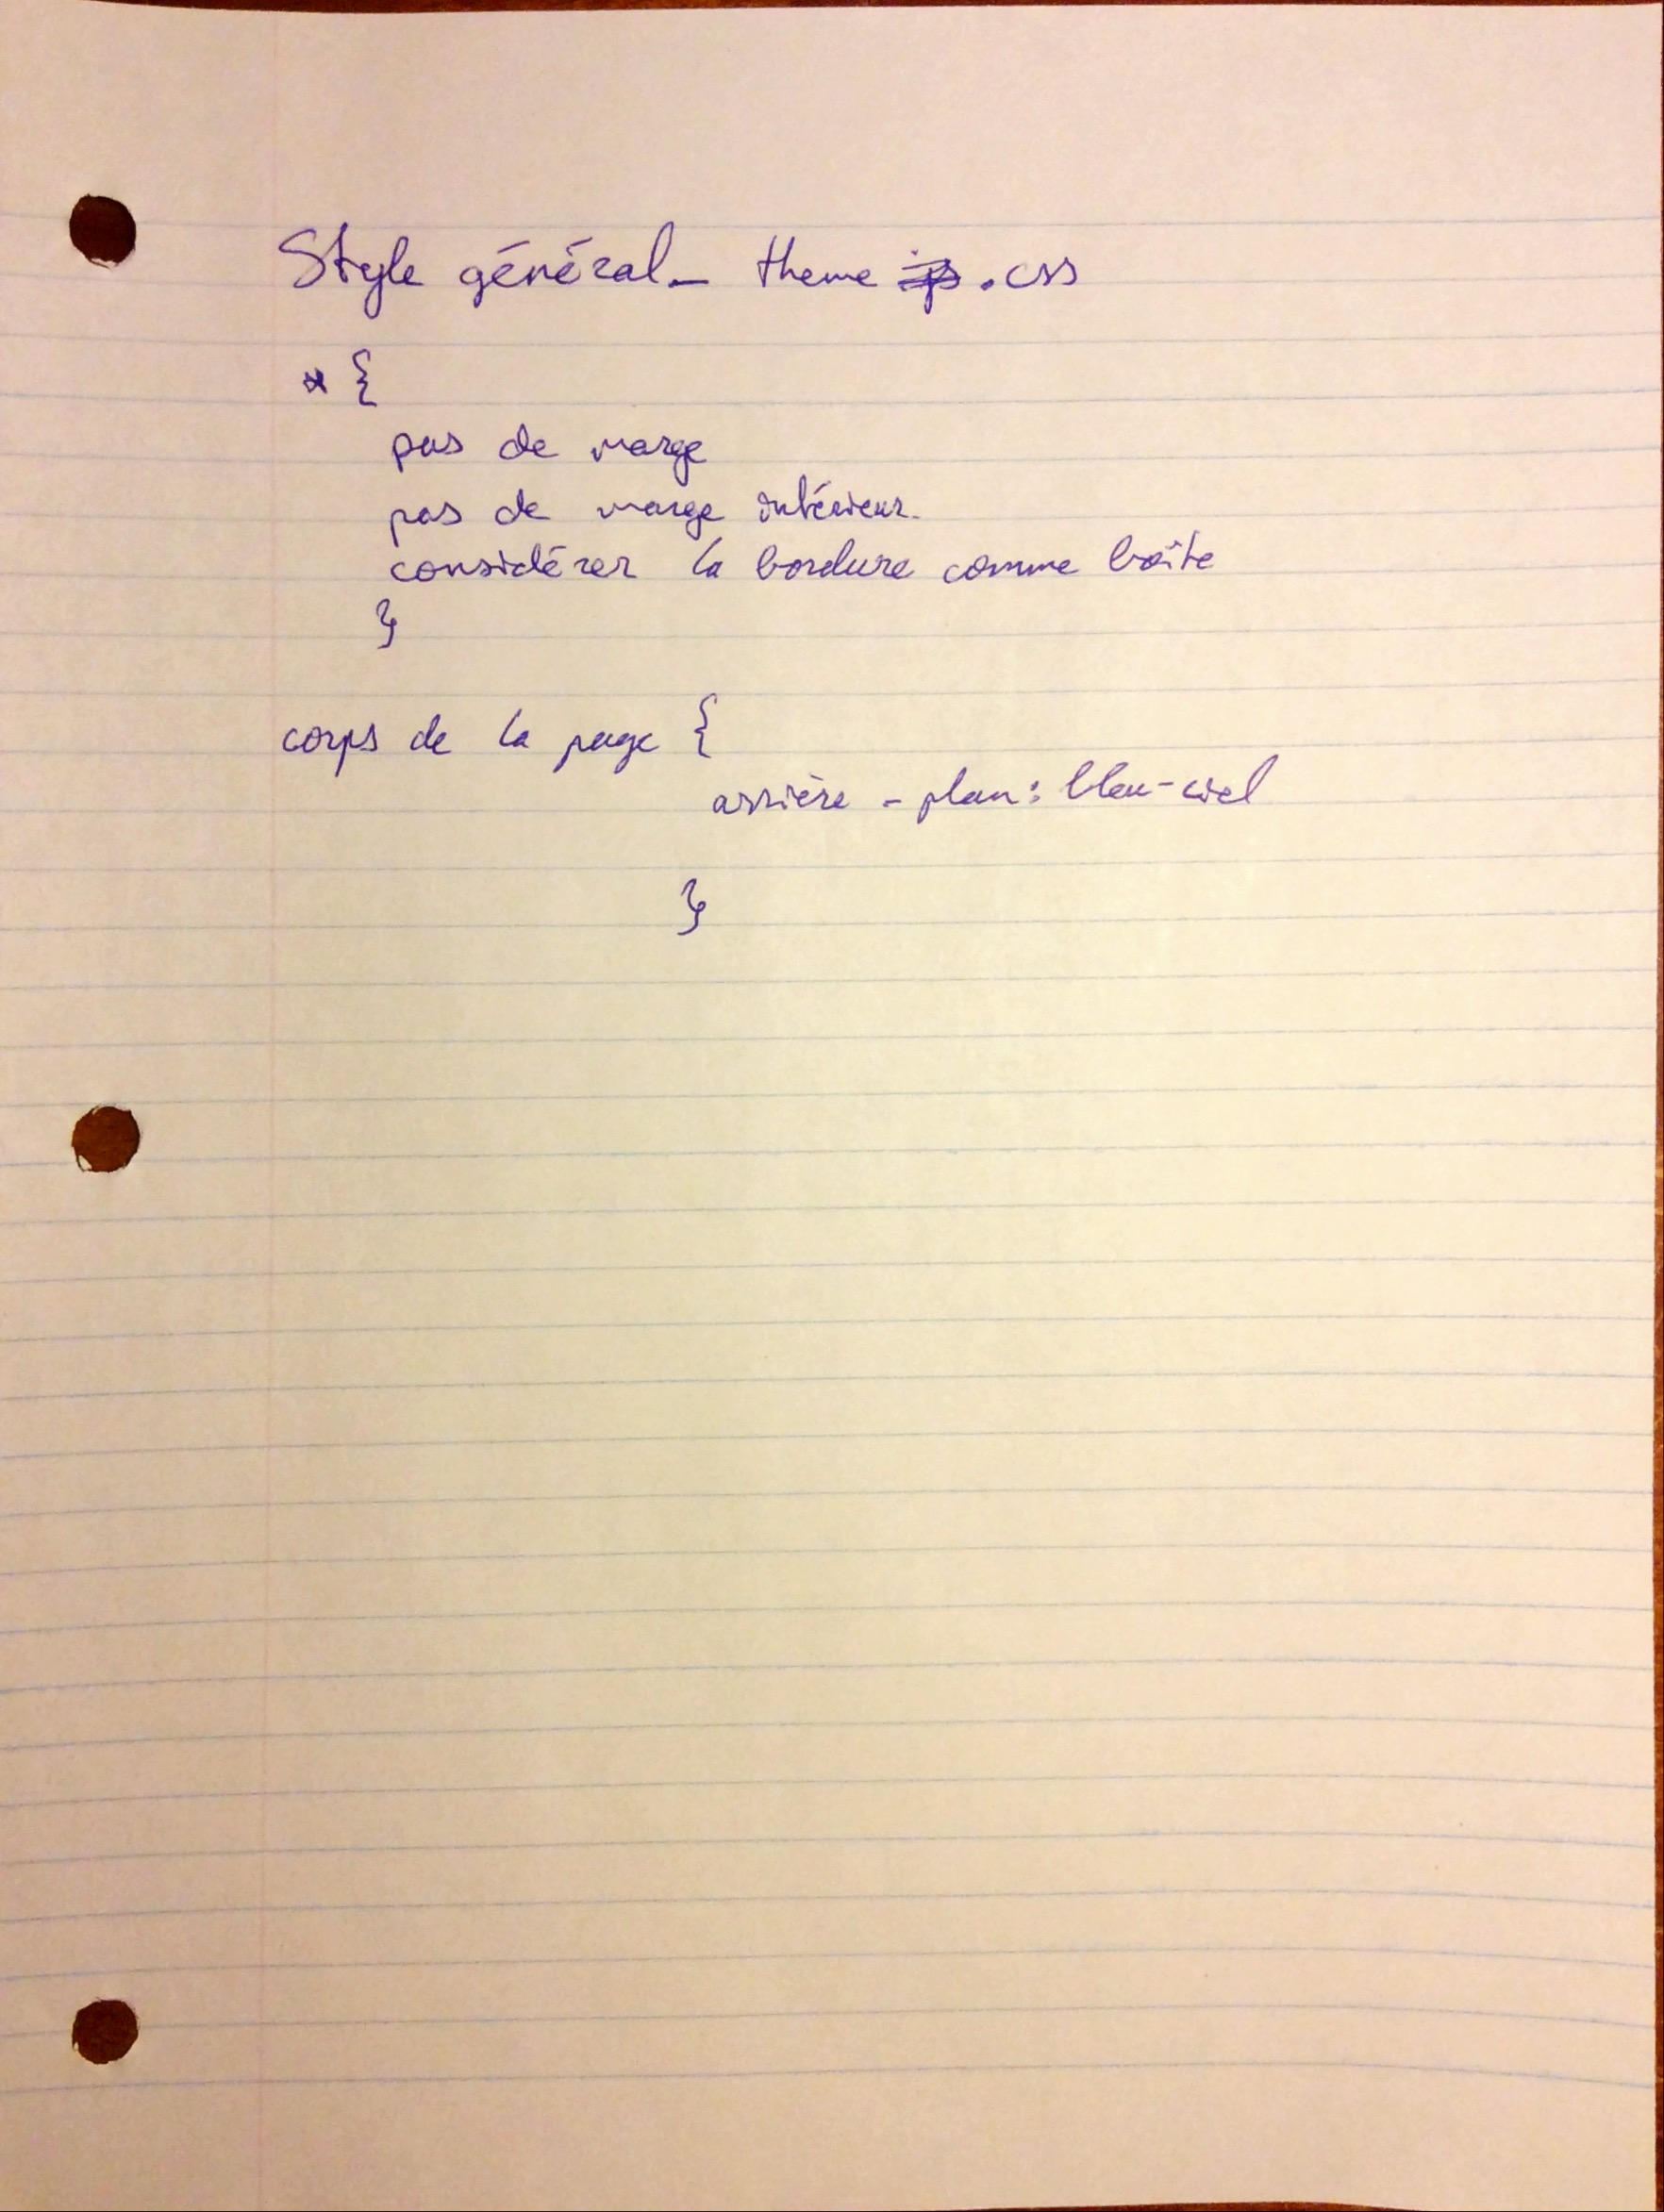 Style général - theme .css
* {
pas de marge
pas de marge intérieur.
considérer la bordure comme boîte
}
corps de la page {
arrière - plan : bleu-ciel
}